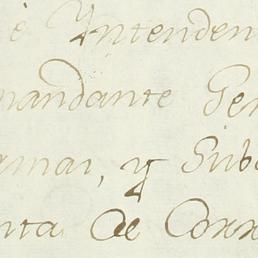 è Intenden
mandante Gen
amar, y Sub
nta de Corr